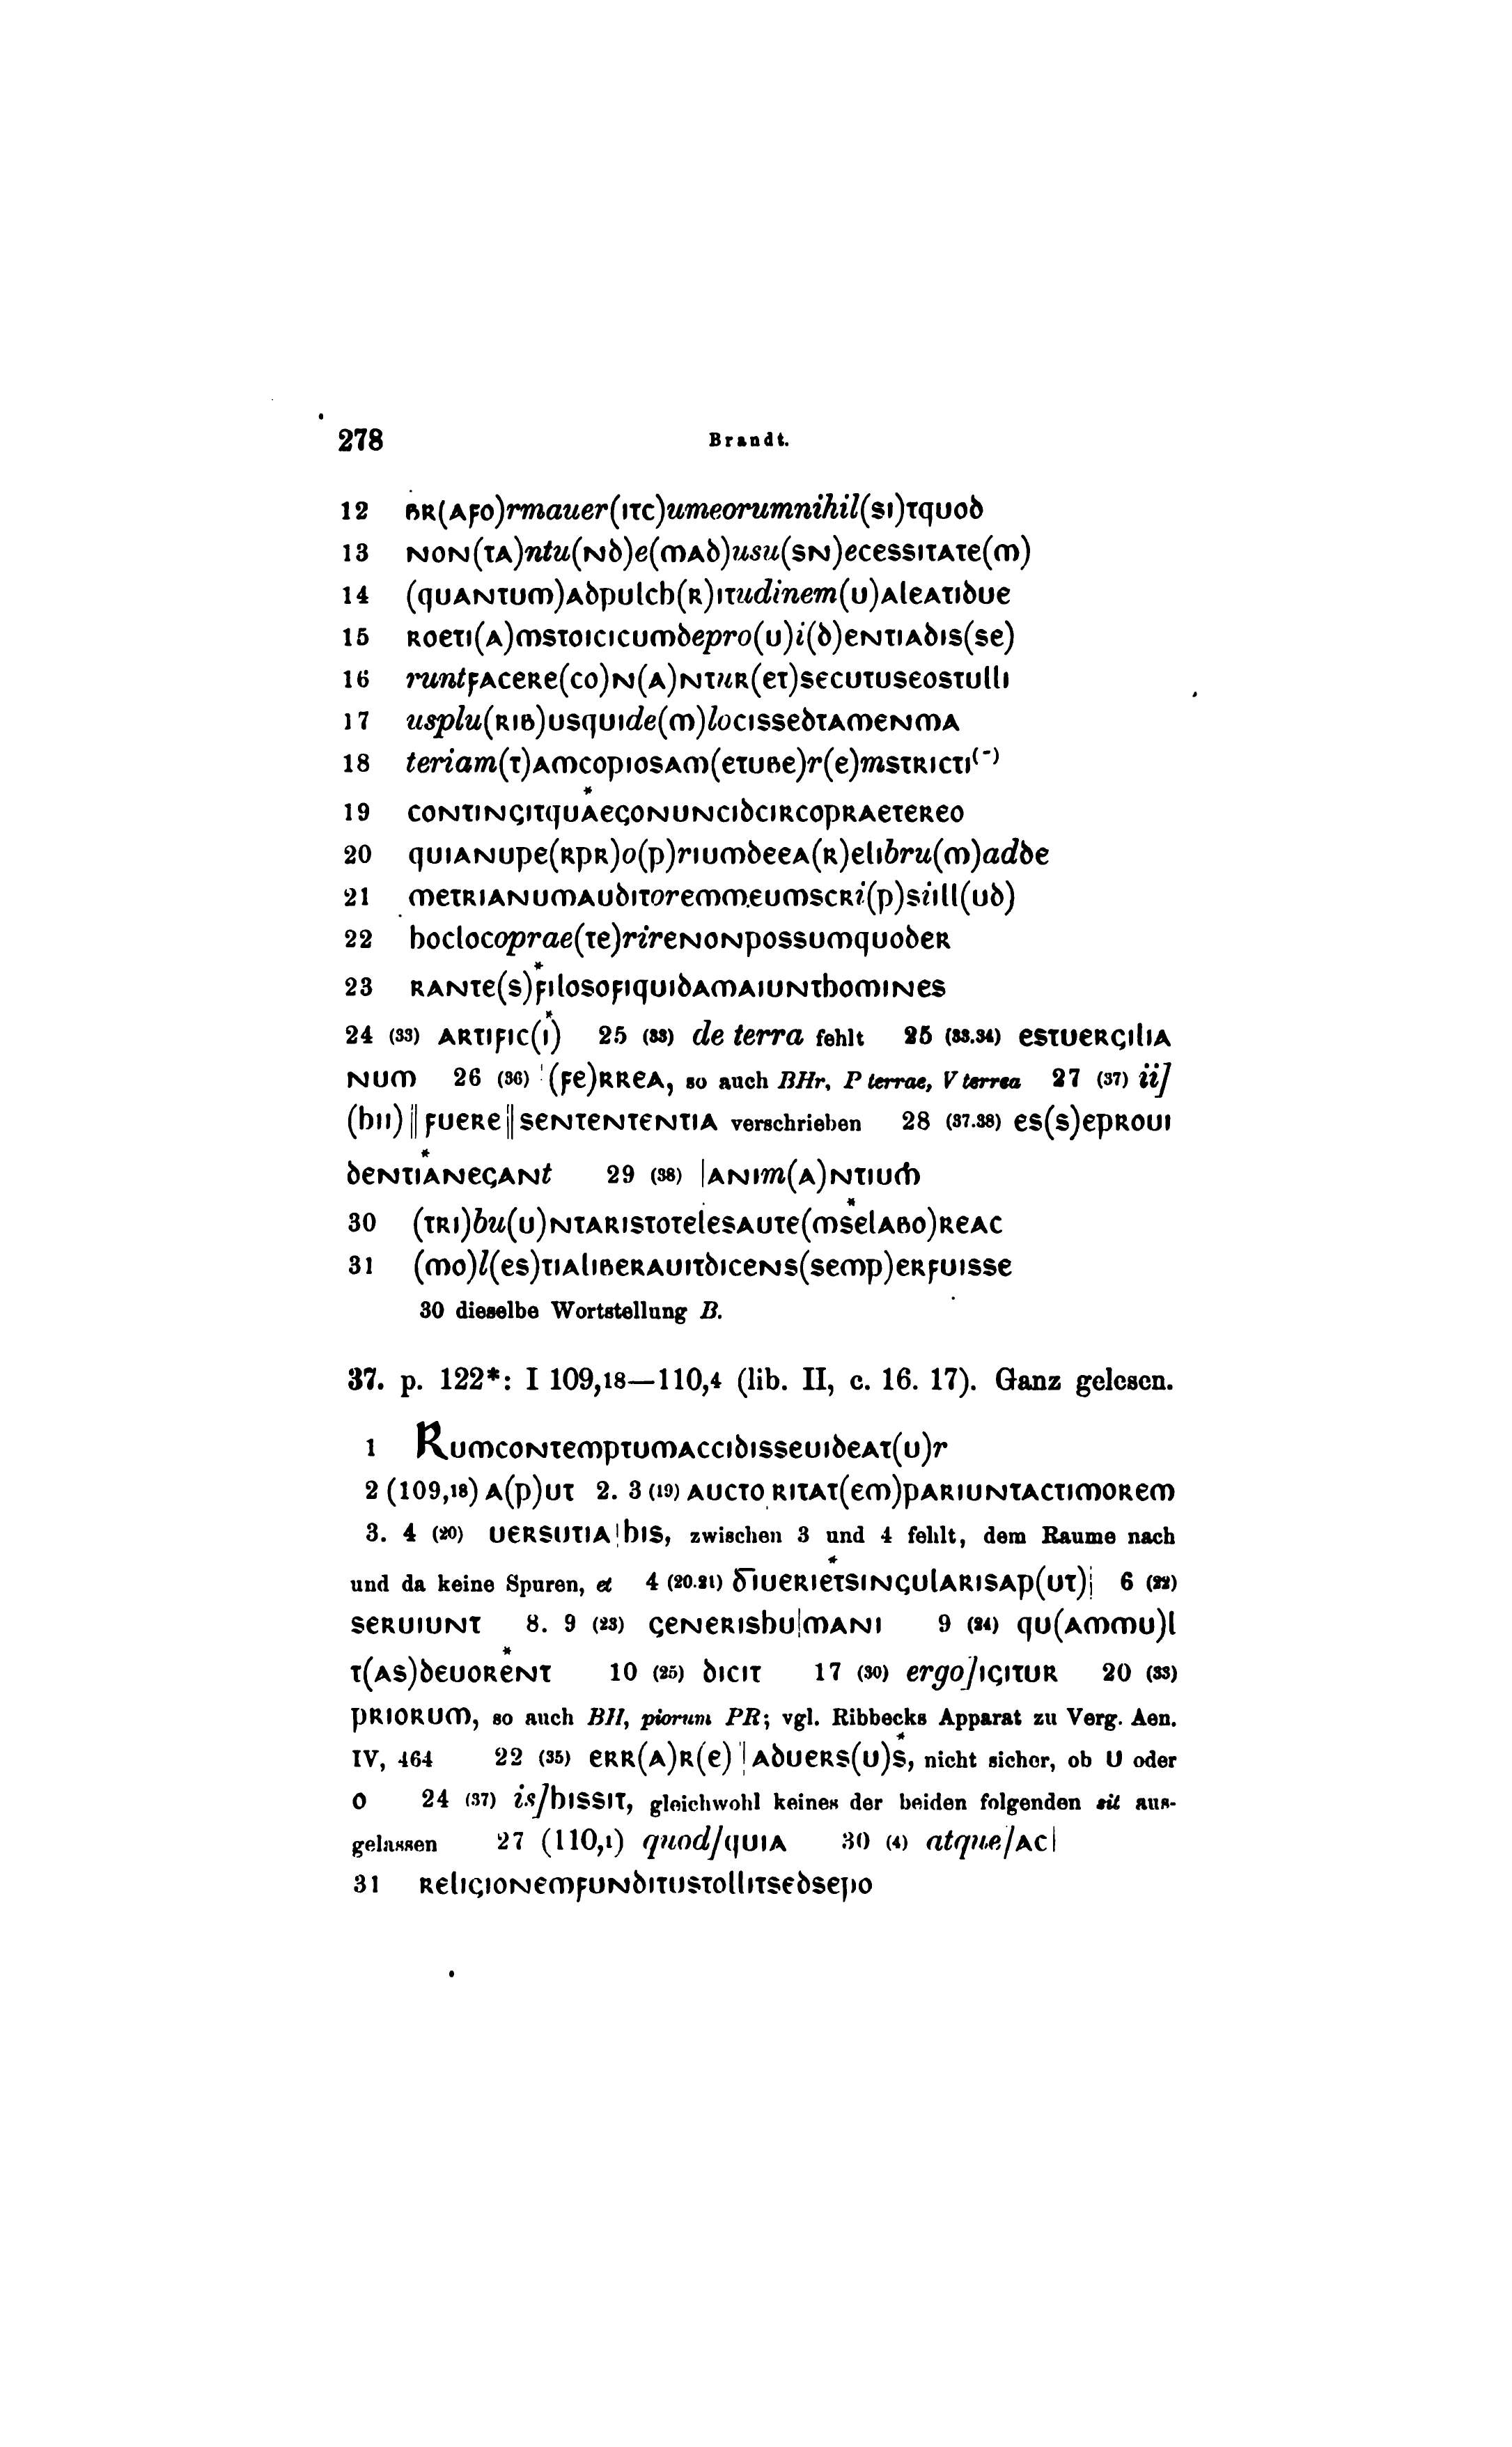 278 Brandt.
12 BR(AFO)rmauer(ITC)umeorumnihil(SI)TQUOD
13 NON(TA)ntu(ND)e(MAD)usu(SN)ECESSITATE(M)
14 (QUANTUM)ADPULCH(R)ITudinem(U)ALEATIDUE
15 ROETI(A)MSTOICICUMDEpro(U)i(D)ENTIADIS(SE)
16 runtFACERE(CO)N(A)NTuR(ET)SECUTUSEOSTULLI
17 usplu(RIB)USQUIde(M)loCISSEDTAMENMA
18 teriam(T)AMCOPIOSAM(ETUBE)r(E)mSTRICTI(-)
19 CONTINGITQUAEGONUNCIDCIRCOPRAETEREO
20 QUIANUPE(RPR)o(P)rIUMDEEA(R)ELIbru(M)adDE
21 METRIANUMAUDITOremMEUMSCRi(P)siILL(UD)
22 HOCLOCoprae(TE)rirENONPOSSUMQUODER
23 RANTE(S)FILOSOFIQUIDAMAIUNTHOMINES
24 (33) ARTIFIC(I) 25 (33) de terra fehlt 25 (33.34) ESTUERGILIA
NUM 26 (36) ¦(FE)RREA, so auch BHr, P terrae, V terrea 27 (37) ii]
(HII)‖FUERE‖SENTENTENTIA verschrieben 28 (37.38) ES(S)EPROUI
DENTIANEGANt 29 (38) |ANIm(A)NTIUM
30 (TRI)bu(U)NTARISTOTELESAUTE(MSELABO)REAC
31 (MO)l(ES)TIALIBERAUITDICENS(SEMP)ERFUISSE
30 dieselbe Wortstellung B.
37. p. 122*: I 109,18—110,4 (lib. II, c. 16. 17). Ganz gelesen.
1 RUMCONTEMPTUMACCIDISSEUIDEAT(U)r
2 (109,18) A(P)UT 2. 3 (19) AUCTORITAT(EM)PARIUNTACTIMOREM
3. 4 (20) UERSUTIA¦HIS, zwischen 3 und 4 fehlt, dem Raume nach
und da keine Spuren, et 4 (20.21) DIUERIETSINGULARISAP(UT)¦ 6 (22)
SERUIUNT 8. 9 (23) GENERISHU|MANI 9 (24) QU(AMMU)L
T(AS)DEUORENT 10 (25) DICIT 17 (30) ergo]IGITUR 20 (33)
PRIORUM, so auch BH, piorum PR; vgl. Ribbecks Apparat zu Verg. Aen.
IV, 464 22 (35) ERR(A)R(E)¦|ADUERS(U)S, nicht sicher, ob U oder
O 24 (37) is]HISSIT, gleichwohl keines der beiden folgenden sit aus-
gelassen 27 (110,1) quod]QUIA 30 (4) atque]AC|
31 RELIGIONEMFUNDITUSTOLLITSEDSEPO